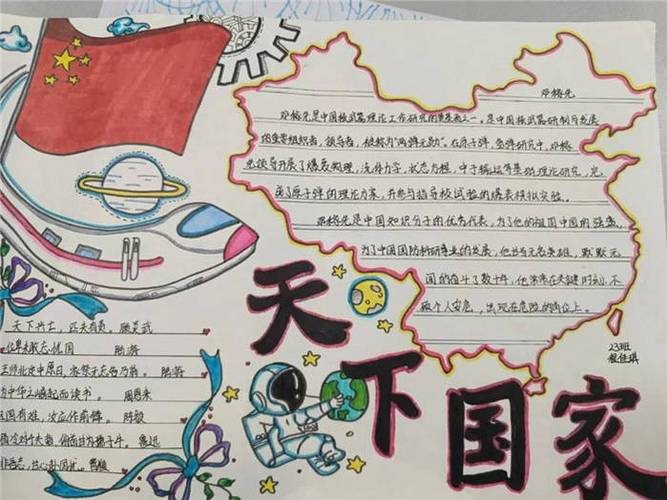 邓稼先
邓稼先是中国核武器理论工作研究的奠基者之一。是中国核武器研制与发展
的重要组织者，领导者，被称为“两弹元勋”。在原子弹、氢弹研究中，邓稼
先领导开展了爆轰物理，流体力学，状态方程，中子输运等基础理论研究，完
成了原子弹的理论方案，并参与指导核试验的爆轰模拟实验。
邓稼先是中国知识分子的优秀代表，为了他的祖国中国的强盛，
为了中国国防科研事业的发展，他甘当无名英雄，默默无
闻的奋斗了数十年，他常常在关键时刻，不
顾个人安危，出现在危险的岗位上。
23班
程佳琪
天下国家
天下兴亡，匹夫有责 顾炎武
位卑未敢忘忧国 陆游
王师北定中原日，家祭无忘告乃翁。 陆游
为中华之崛起而读书。 周恩来
祖国有难，汝应作前锋。 陈毅
横眉冷对千夫指，俯首甘为孺子牛。 鲁迅